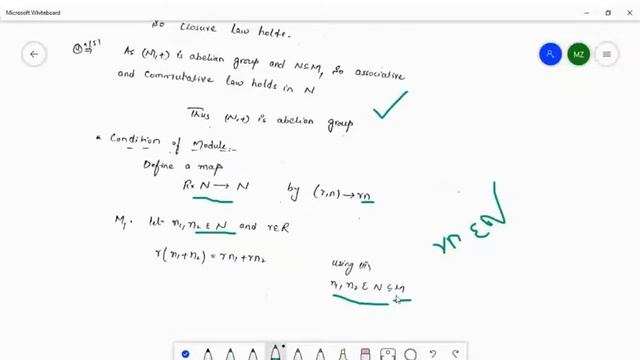 Microsoft Whiteboard
MZ
So closure law holds.
As (M,+) is abelian group and N⊆M, so associative
and commutative law holds in N
Thus (N,+) is abelian group
* Condition of Module:-
Define a map
R×N → N by (r,n) → rn
M₁. let n₁, n₂ ∈ N and r∈R
r(n₁+n₂) = rn₁+rn₂
rn ∈ N
using
n₁, n₂ ∈ N ⊆ M